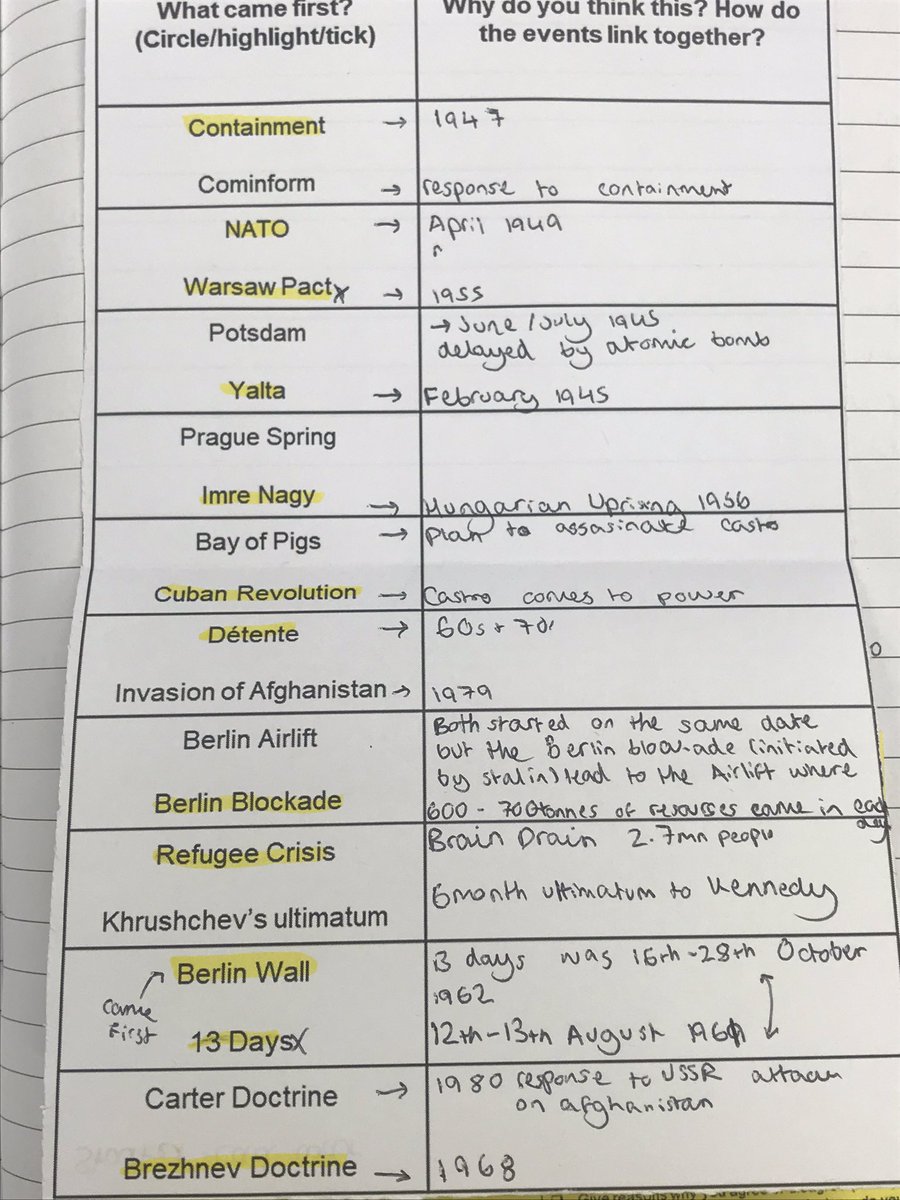 What came first?
(Circle/highlight/tick)
Why do you think this? How do
the events link together?
Containment → 1947
Cominform → response to containment
NATO → April 1949
Warsaw Pact x → 1955
Potsdam → June/July 1945
delayed by atomic bomb
Yalta → February 1945
Prague Spring
Imre Nagy → Hungarian Uprising 1956
Bay of Pigs → Plan to assasinate castro
Cuban Revolution → Castro comes to power
Détente → 60s + 70s
Invasion of Afghanistan → 1979
Berlin Airlift
Both started on the same date
but the Berlin blockade (initiated
by stalin) lead to the Airlift where
Berlin Blockade
600 - 700tonnes of resources came in each
day
Refugee Crisis
Brain Drain 2.7mn people
Khrushchev's ultimatum
6month ultimatum to Kennedy
Berlin Wall
came
First
13 days was 16th-28th October
1962
13 Days x
12th-13th August 1961
Carter Doctrine → 1980 response to USSR attack
on afghanistan
Brezhnev Doctrine → 1968